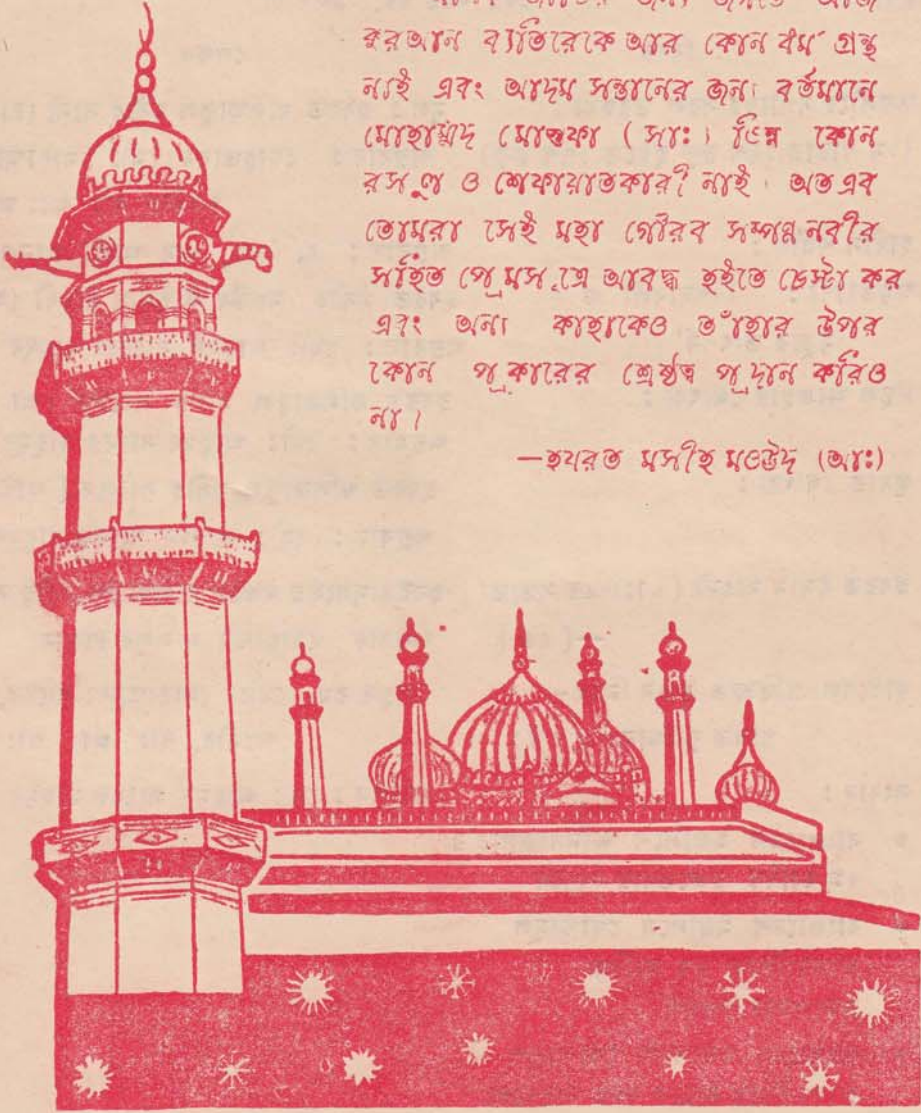 জাতির জন্য জগতে আজ
কুরআন ব্যতিরেকে আর কোন ধর্ম গ্রন্থ
নাই এবং আদম সন্তানের জন্য বর্তমানে
মোহাম্মাদ মোস্তফা (সাঃ) ভিন্ন কোন
রসূল ও শেফায়াতকারী নাই। অতএব
তোমরা সেই মহা গৌরব সম্পন্ন নবীর
সহিত প্রেমসূত্রে আবদ্ধ হইতে চেষ্টা কর
এবং অন্য কাহাকেও তাঁহার উপর
কোন প্রকারের শ্রেষ্ঠত্ব প্রদান করিও
না।
—হযরত মসীহ মওউদ (আঃ)